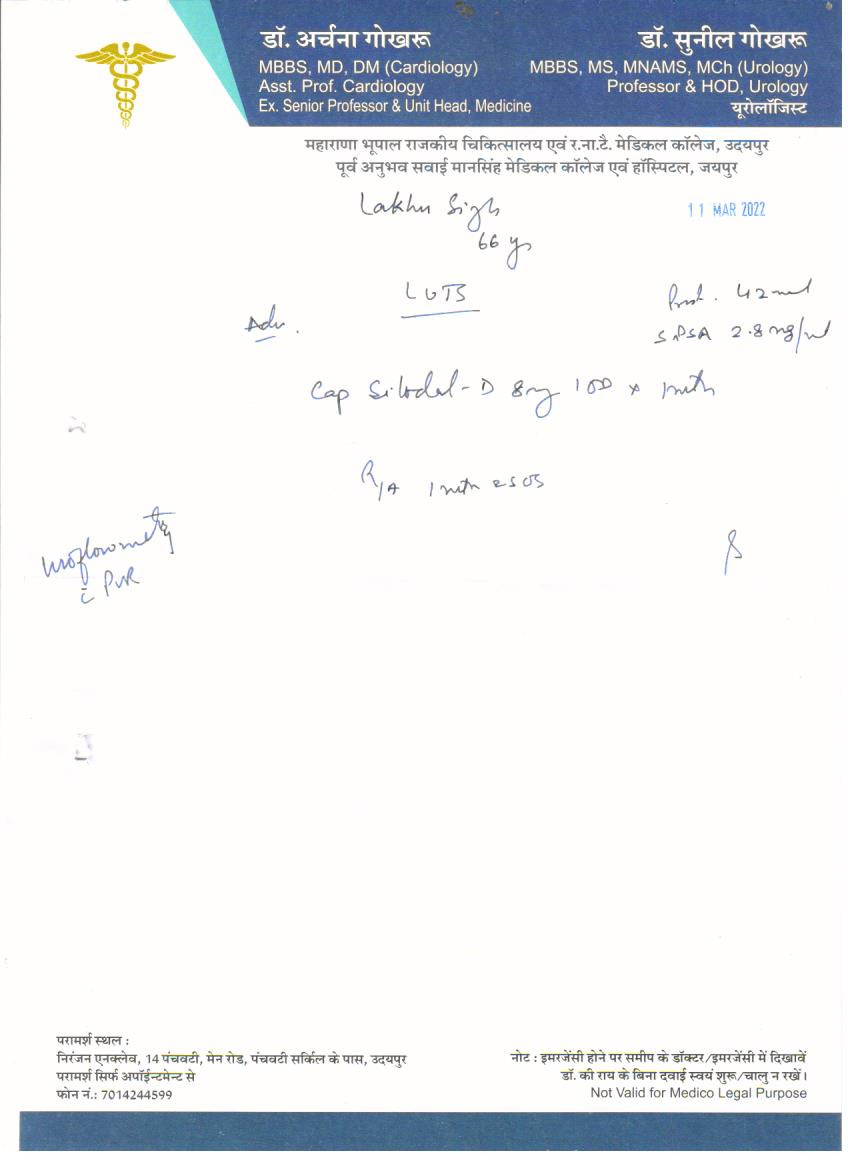 डॉ. अर्चना गोखरू
MBBS, MD, DM (Cardiology)
Asst. Prof. Cardiology
Ex. Senior Professor & Unit Head, Medicine
डॉ. सुनील गोखरू
MBBS, MS, MNAMS, MCh (Urology)
Professor & HOD, Urology
यूरोलॉजिस्ट
महाराणा भूपाल राजकीय चिकित्सालय एवं र.ना.टै. मेडिकल कॉलेज, उदयपुर
पूर्व अनुभव सवाई मानसिंह मेडिकल कॉलेज एवं हॉस्पिटल, जयपुर
Lakhu Sigh
11 MAR 2022
66 yr
LUTS
Prost. 42 ml
Adv.
S.PSA 2.8 ng/ml
Cap Silodal-D 8mg 1OD x 1mth
R/A 1 mth
Uroflowmetry
c̄ PVR
परामर्श स्थल :
निरंजन एनक्लेव, 14 पंचवटी, मेन रोड, पंचवटी सर्किल के पास, उदयपुर
परामर्श सिर्फ अपॉईन्टमेन्ट से
फोन नं.: 7014244599
नोट : इमरजेंसी होने पर समीप के डॉक्टर/इमरजेंसी में दिखावें
डॉ. की राय के बिना दवाई स्वयं शुरू/चालु न रखें।
Not Valid for Medico Legal Purpose